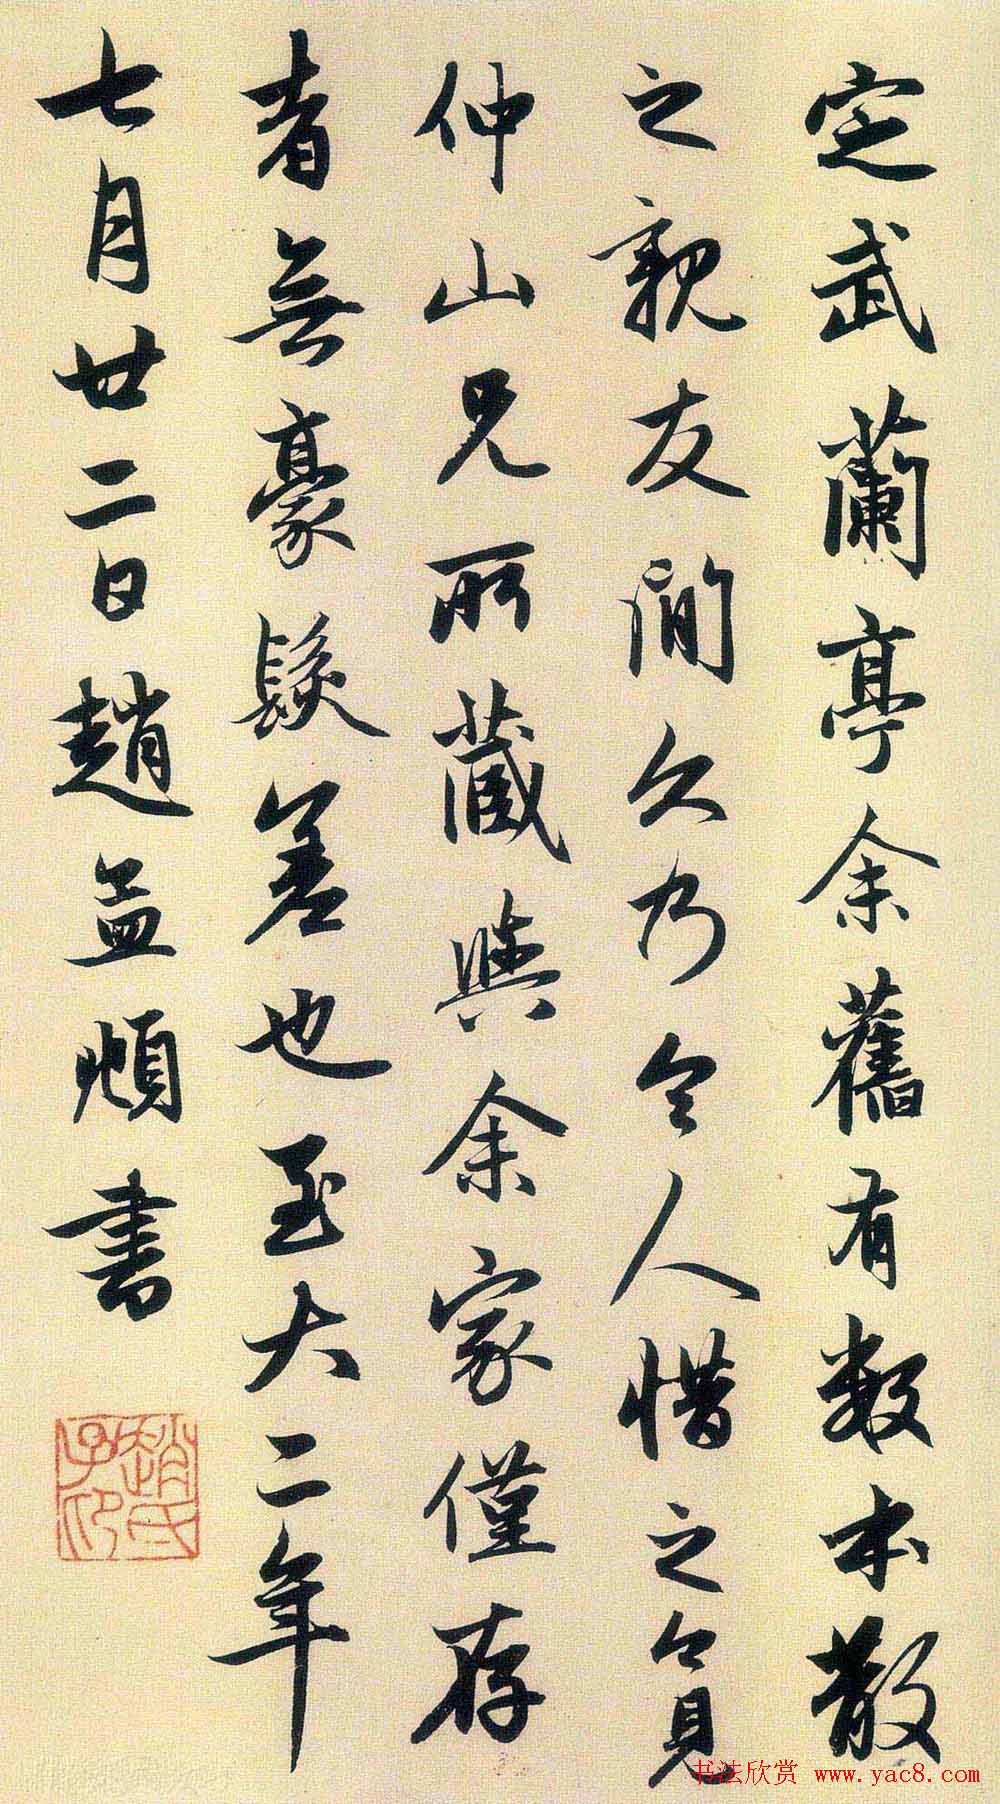 定武蘭亭余舊有数本散
之親友間久乃令人惜之今見
仲山兄所藏與余家僅存
者無豪髮差也至大二年
七月廿二日趙孟頫書
趙氏子印
书法欣赏 www.yac8.com